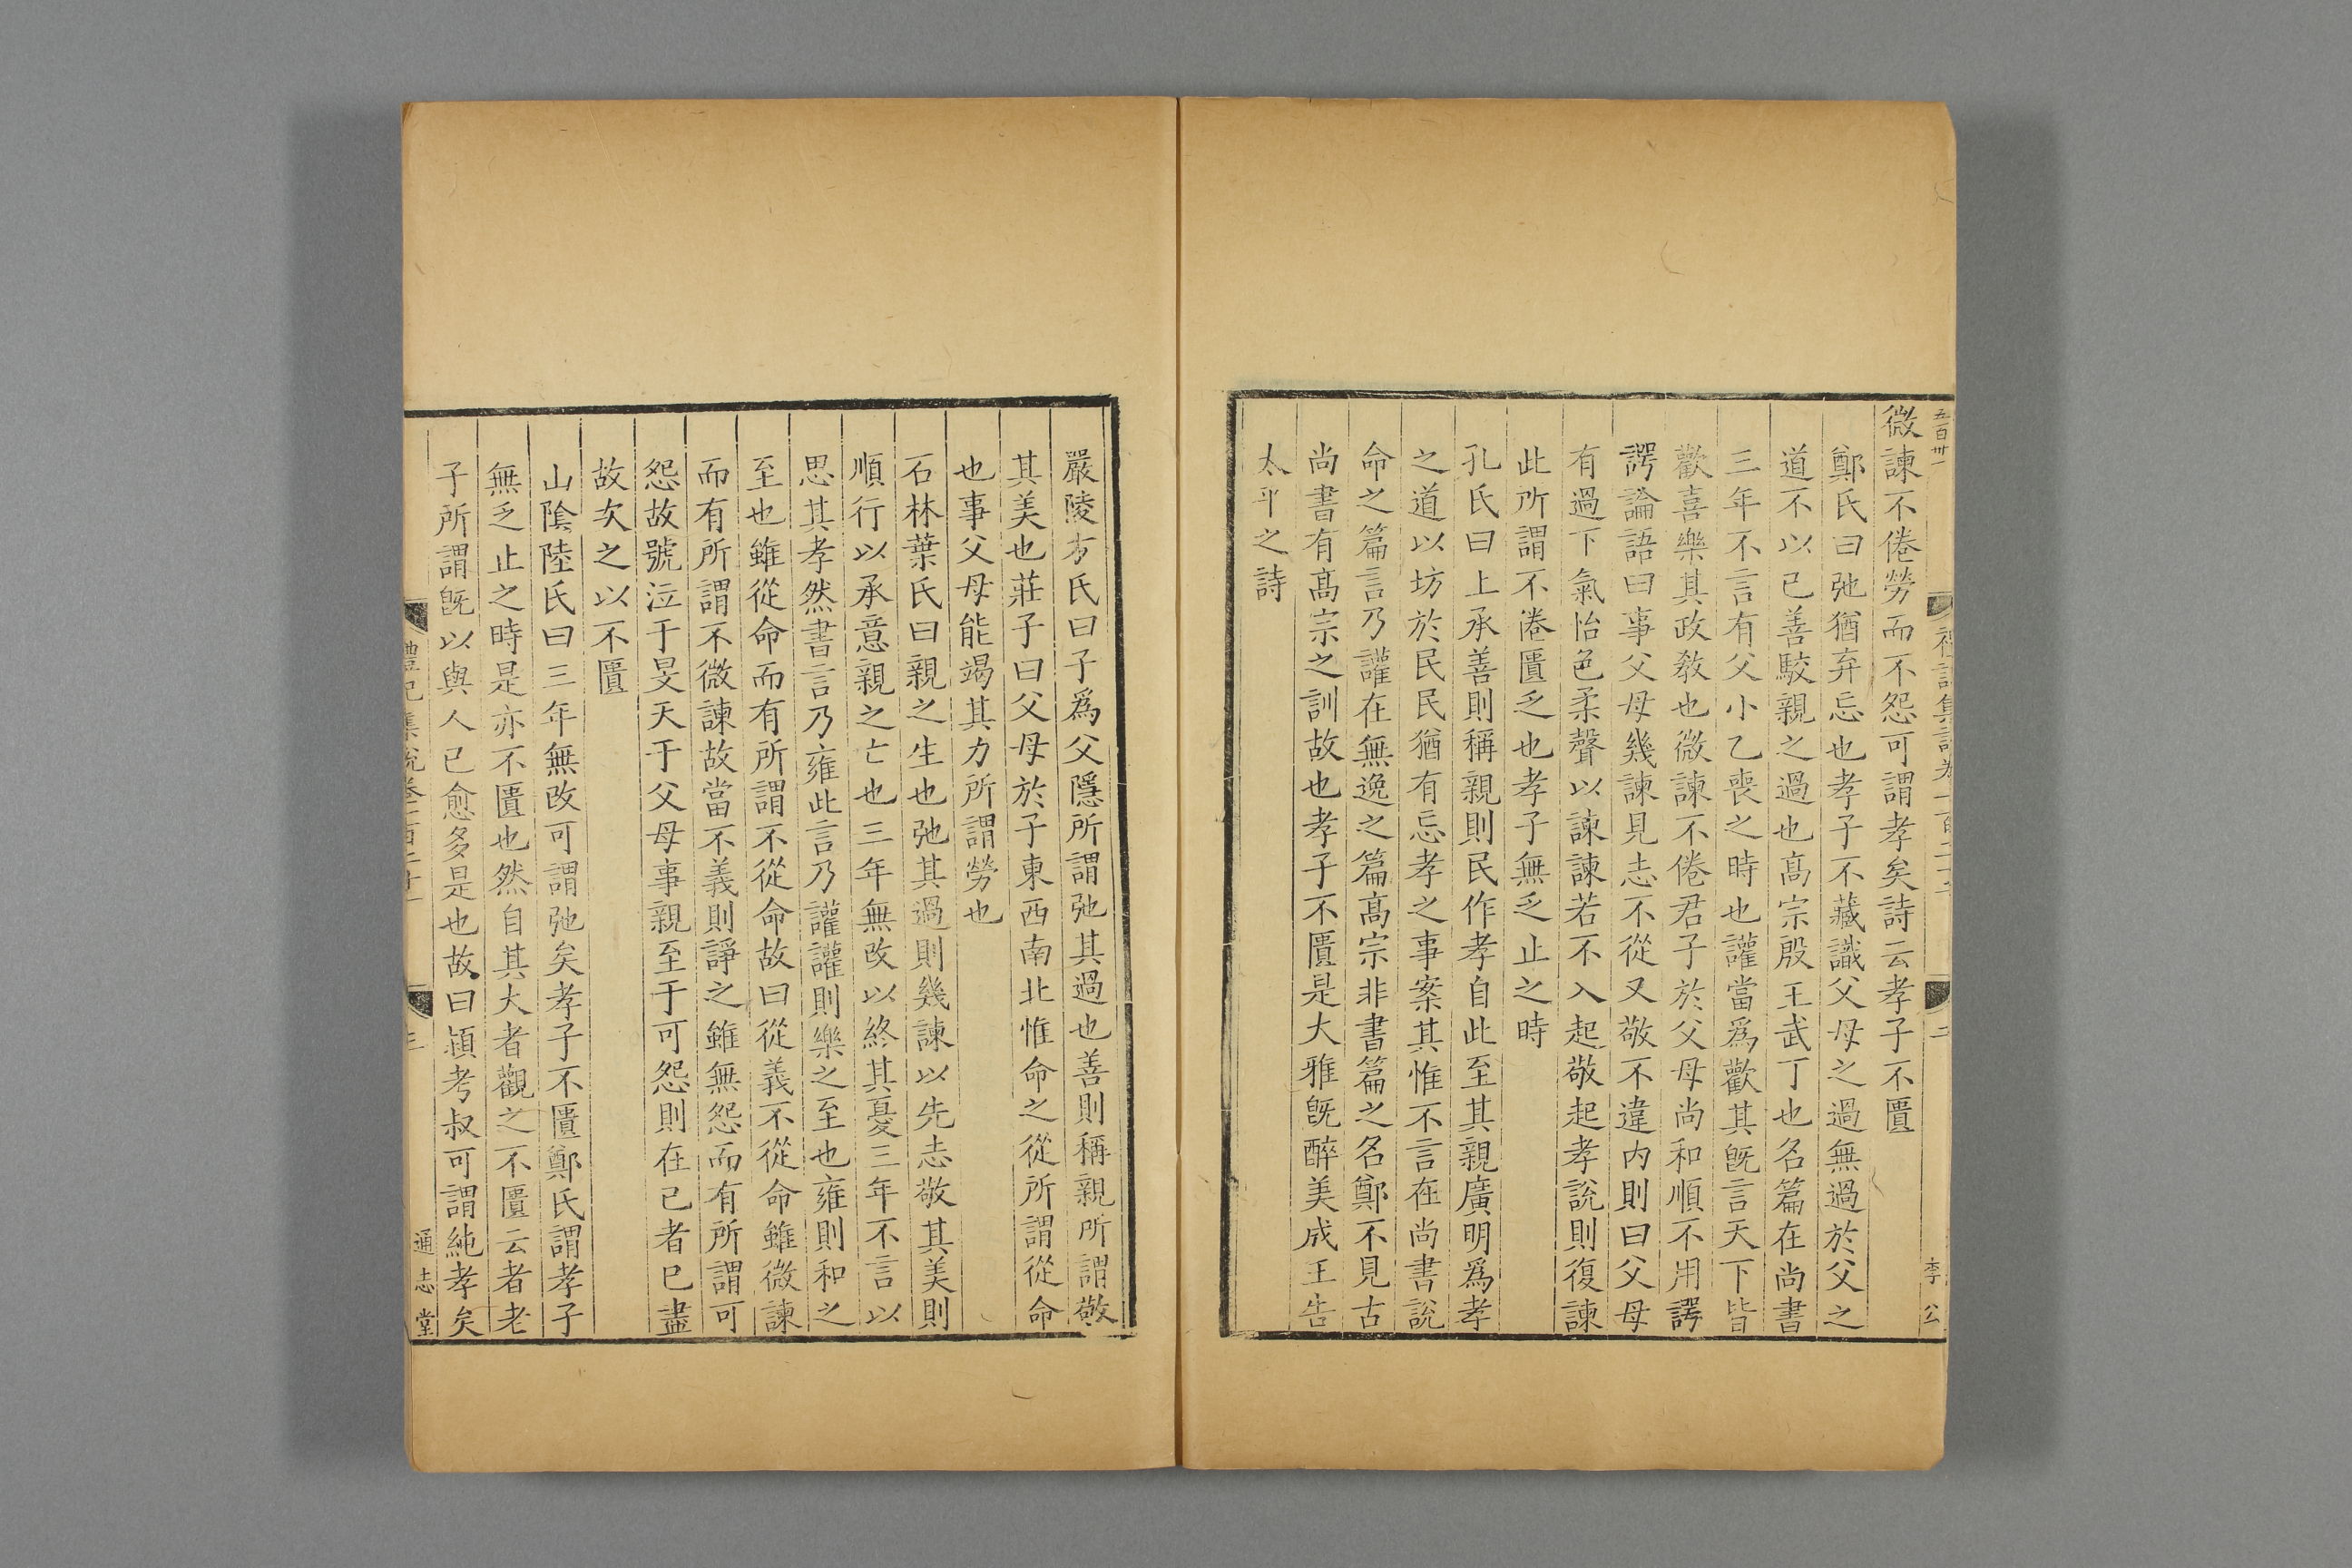 五百卅一
二
李公
微諫不倦勞而不怨可謂孝矣詩云孝子不匱
鄭氏曰弛猶弃忘也孝子不藏識父母之過無過於父之
道不以已善駮親之過也髙宗殷王武丁也名篇在尚書
三年不言有父小乙喪之時也讙當爲歡其旣言天下皆
歡喜樂其政敎也微諫不倦君子於父母尚和順不用諤
諤論語曰事父母幾諫見志不從又敬不違内則曰父母
有過下氣怡色柔聲以諫諫若不入起敬起孝說則復諫
此所謂不倦匱乏也孝子無乏止之時
孔氏曰上承善則稱親則民作孝自此至其親廣明爲孝
之道以坊於民民猶有忘孝之事案其惟不言在尚書說
命之篇言乃讙在無逸之篇髙宗非書篇之名鄭不見古
尚書有髙宗之訓故也孝子不匱是大雅旣醉美成王告
太平之詩
嚴陵方氏曰子爲父隱所謂弛其過也善則稱親所謂敬
其美也莊子曰父母於子東西南北惟命之從所謂從命
也事父母能竭其力所謂勞也
石林葉氏曰親之生也弛其過則幾諫以先志敬其美則
順行以承意親之亡也三年無改以終其憂三年不言以
思其孝然書言乃雍此言乃讙讙則樂之至也雍則和之
至也雖從命而有所謂不從命故曰從義不從命雖微諫
而有所謂不微諫故當不義則諍之雖無怨而有所謂可
怨故號泣于旻天于父母事親至于可怨則在已者已盡
故次之以不匱
山陰陸氏曰三年無改可謂弛矣孝子不匱鄭氏謂孝子
無乏止之時是亦不匱也然自其大者觀之不匱云者老
子所謂旣以與人已愈多是也故曰潁考叔可謂純孝矣
禮記集說卷一百二十一
三
通志堂